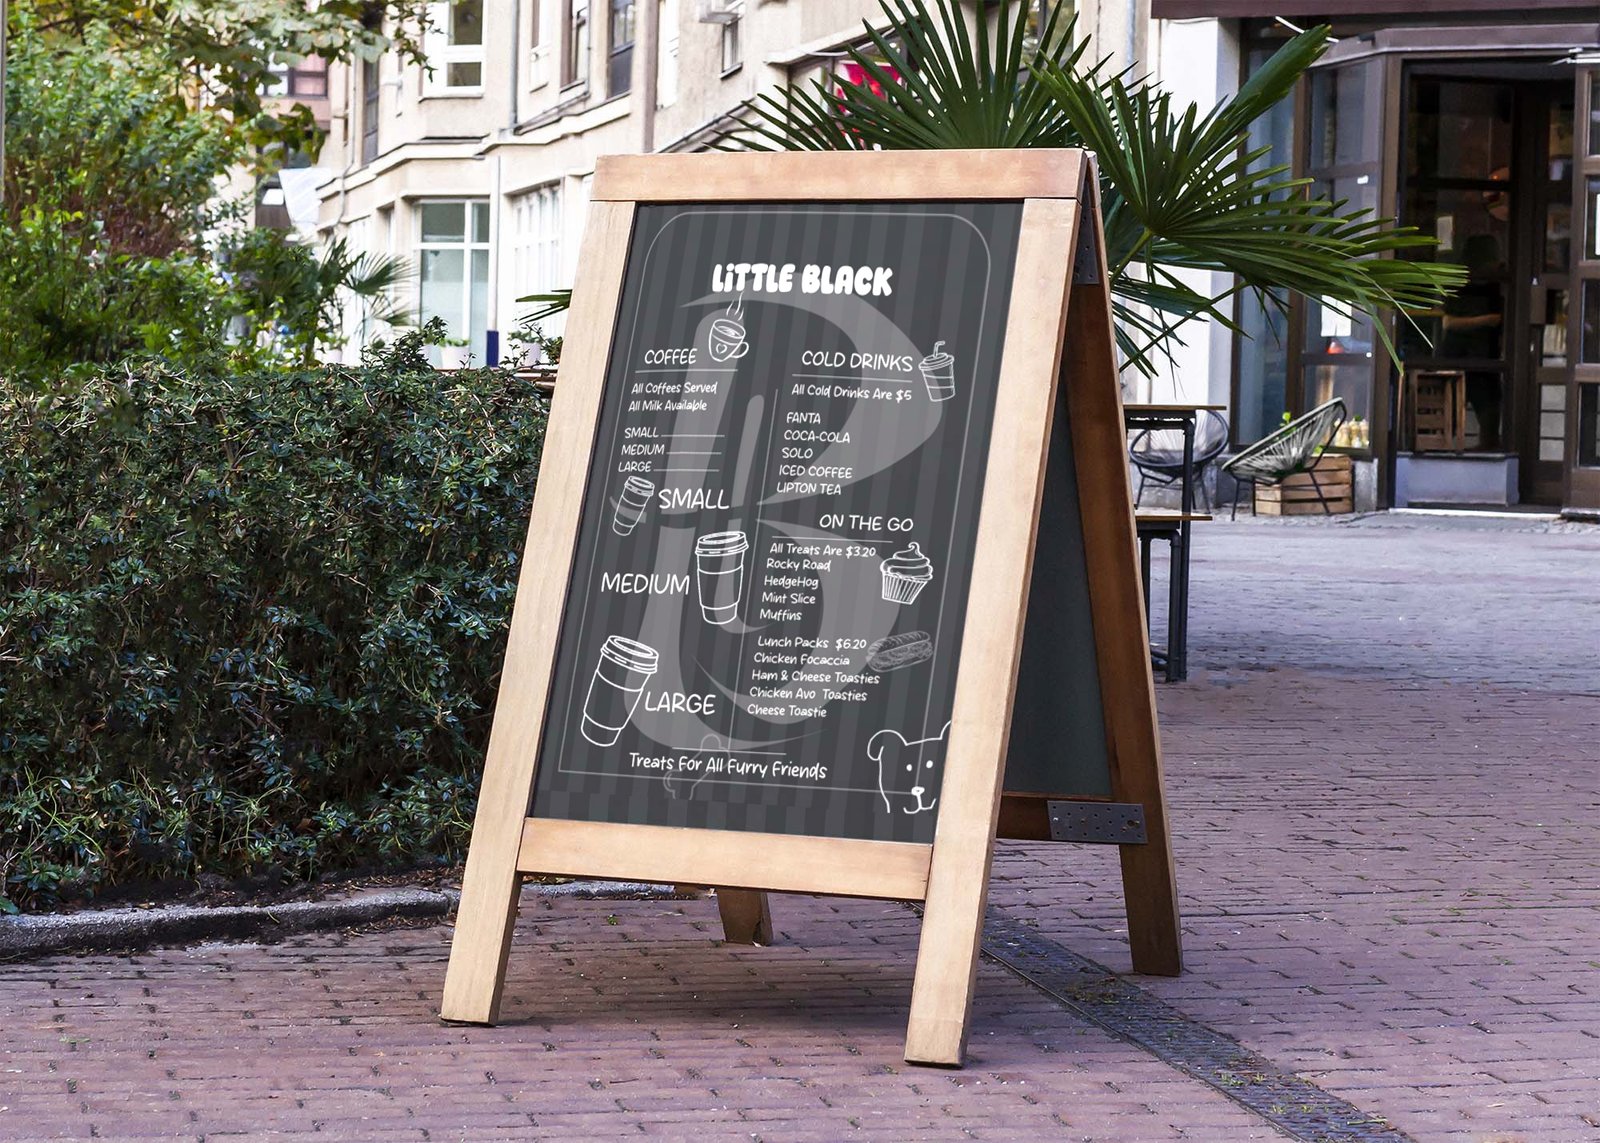 LiTTLE BLACK
COFFEE
All Coffees Served
All Milk Available
SMALL
MEDIUM
LARGE
SMALL
MEDIUM
LARGE
COLD DRINKS
All Cold Drinks Are $5
FANTA
COCA-COLA
SOLO
ICED COFFEE
LIPTON TEA
ON THE GO
All Treats Are $3.20
Rocky Road
HedgeHog
Mint Slice
Muffins
Lunch Packs $6.20
Chicken Focaccia
Ham & Cheese Toasties
Chicken Avo Toasties
Cheese Toastie
Treats For All Furry Friends